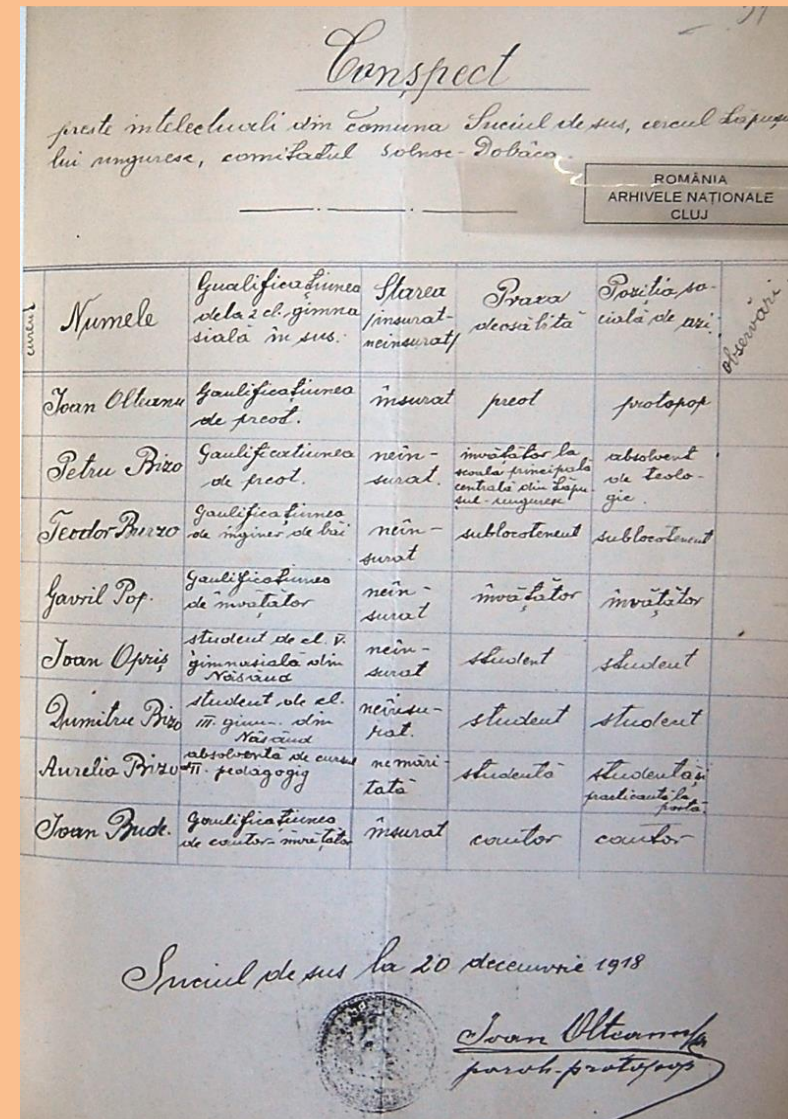 Conșpect
preste intelectuali din comuna Suciul de sus, cercul Lăpușu
lui unguresc, comitatul Solnoc-Dobâca.
ROMÂNIA
ARHIVELE NAȚIONALE
CLUJ
curent Numele Gualificațiunea dela 2 cl. gimna sială în sus. Starea /insurat- neinsurat/ Praxa deosăbită Poziția so- cială de azi. observări
Ioan Olteanu Gaulificațiunea de preot. însurat preot protopop
Petru Bizo Gaulificatiunea de preot. neîn- surat. învătător la scoală principală centrală din Lăpu- șul-unguresc absolvent de teolo- gie.
Teodor Buzzo Gaulificațiunea de inginer de băi neîn- surat sublocotenent sublocotenent
Gavril Pop. Gaulificațiunea de învățător neîn- surat învățător învățător
Ioan Opriș student de cl. V. gimnasială din Năsăud neîn- surat student student
Dumitru Bizo student de cl. III. gimn. din Năsăud neînsu- rat. student student
Aurelia Bizo absolventă de cursul II. pedagogig nemări- tată studentă studentă și practicantă la poștă.
Ioan Bude. Gaulificațiunea de cantor-învețator însurat cantor cantor
Suciul de sus la 20 decemvrie 1918
Ioan Olteanu
paroh-protopop